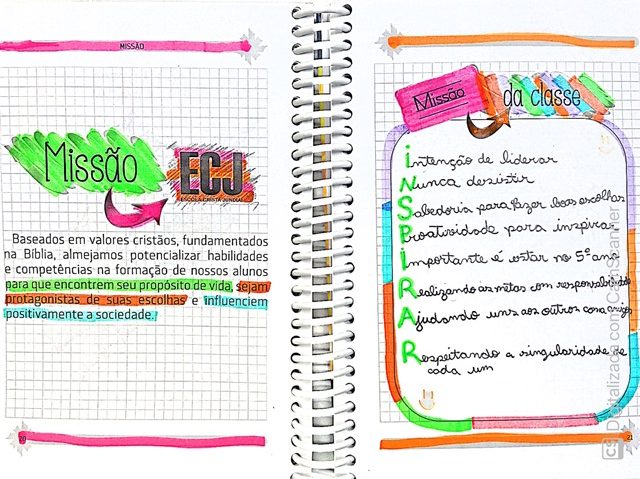 MISSÃO
Missão
ECJ
ESCOLA CRISTÃ JUNDIAÍ
Baseados em valores cristãos, fundamentados
na Bíblia, almejamos potencializar habilidades
e competências na formação de nossos alunos
para que encontrem seu propósito de vida, sejam
protagonistas de suas escolhas e influenciem
positivamente a sociedade.
20
Missão da classe
Intenção de liderar
Nunca desistir
Sabedoria para fazer boas escolhas
Proatividade para inspirar
Importante é estar no 5º ano
Realizando as metas com responsabilidade
Ajudando uns aos outros como amigos
Respeitando a singularidade de
cada um
21
CS Digitalizada com CamScanner